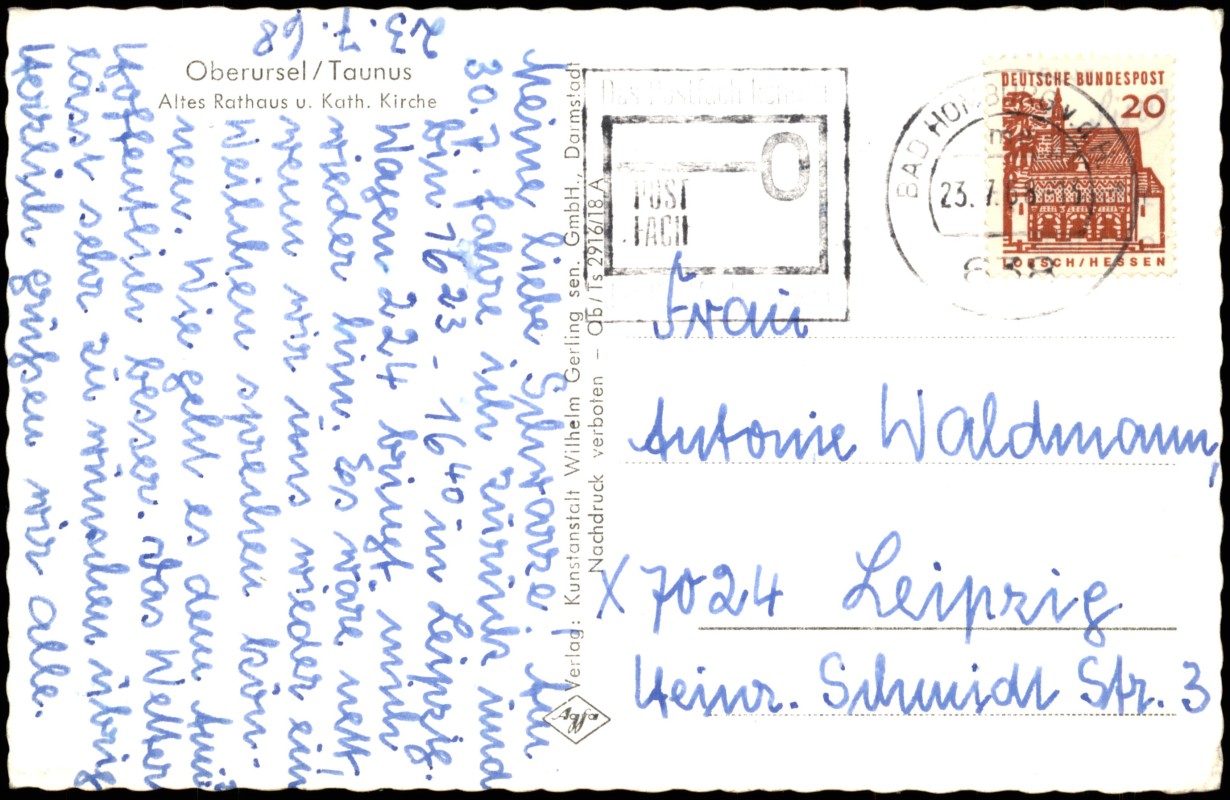 Oberursel / Taunus
Altes Rathaus u. Kath. Kirche
23.7.68
Meine liebe Schwarze! Am
30.7. fahre ich zurück und
bin 16 23 - 16 40 in Leipzig.
Wagen 224 bringt mich
wieder hin. Es wäre nett,
wenn wir uns wieder ein
Weilchen sprechen kön-
nen. Wie geht es dem
Hoffentlich besser. Das Wetter
lässt sehr zu wünschen übrig
Herzlich grüßen wir alle.
Verlag: Kunstanstalt Wilhelm Gerling sen. GmbH., Darmstadt
Nachdruck verboten – Ob/Ts 2916/18 A
Agfa
Das Postfach
POST
FACH
BAD HOMBURG v.d.
23.7.68
638
DEUTSCHE BUNDESPOST
20
LORSCH/HESSEN
Frau
Antonie Waldmann,
X 7024 Leipzig
Heinr. Schmidt Str. 3